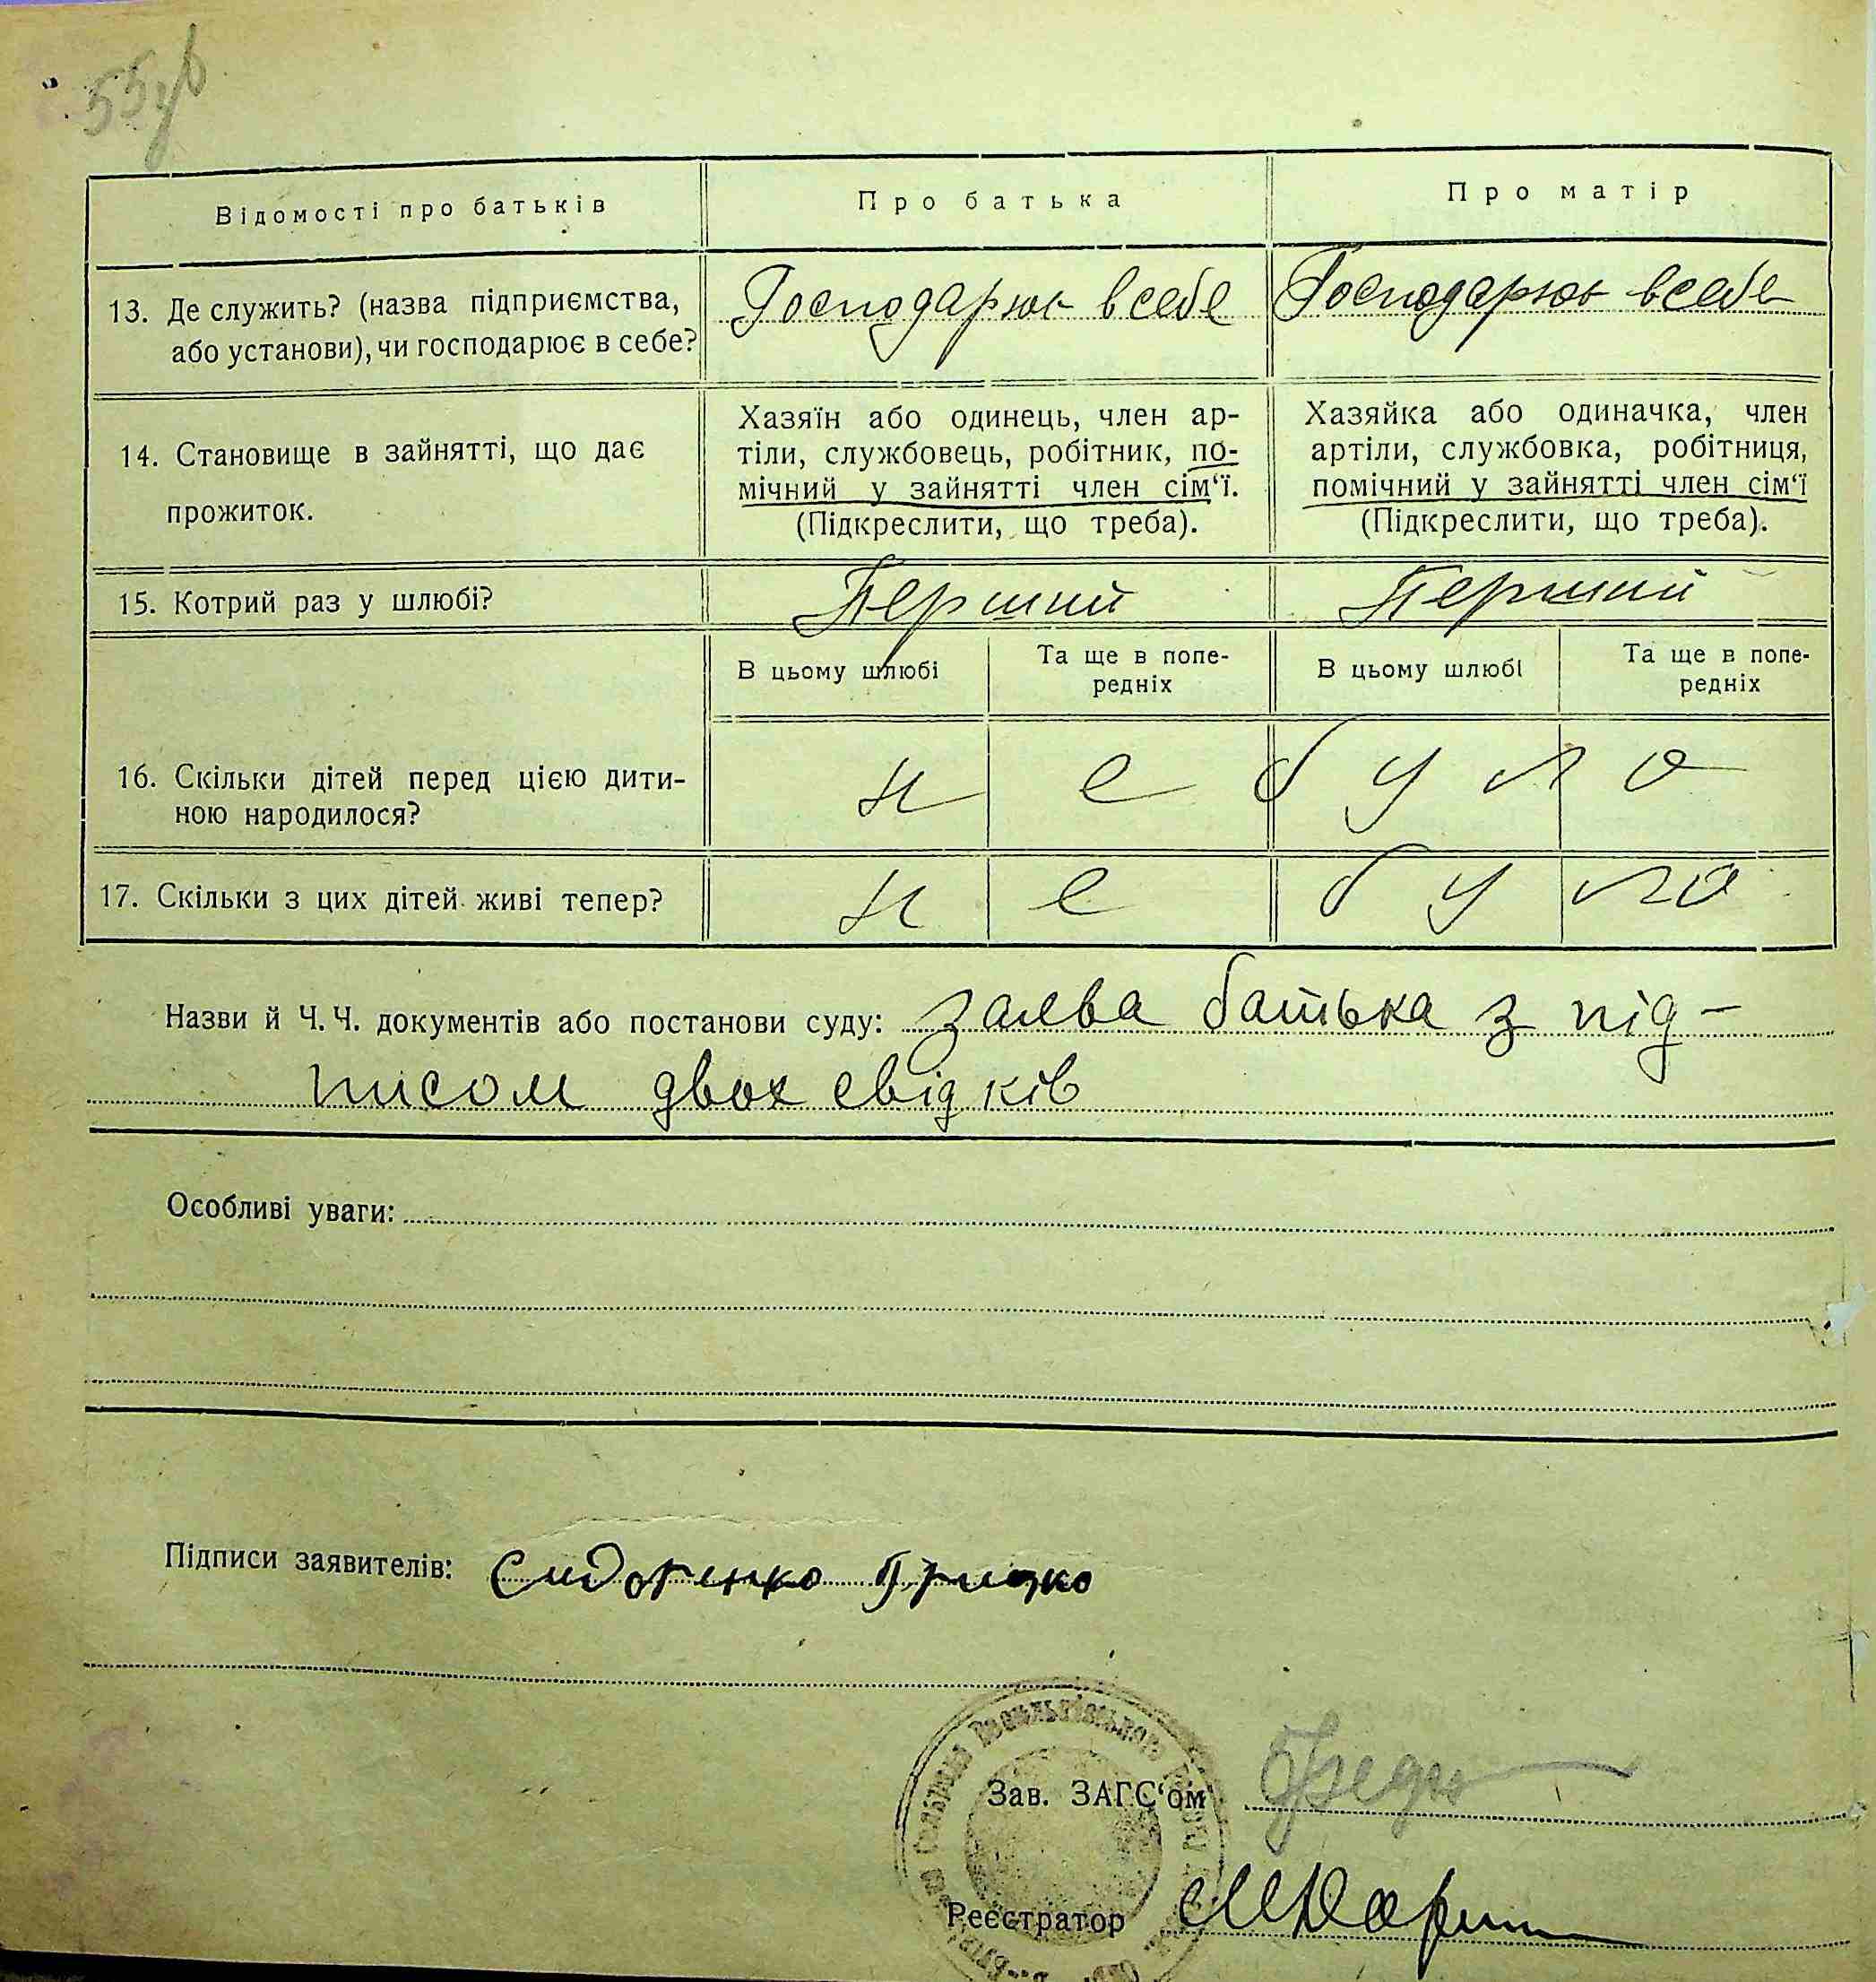 Відомості про батьків
Про батька
Про матір
13. Де служить? (назва підприємства,
або установи), чи господарює в себе?
Господарює в себе
Господарює в себе
14. Становище в зайнятті, що дає
прожиток.
Хазяїн або одинець, член ар-
тіли, службовець, робітник, по-
мічний у зайнятті член сім‘ї.
(Підкреслити, що треба).
Хазяйка або одиначка, член
артіли, службовка, робітниця,
помічний у зайнятті член сім‘ї
(Підкреслити, що треба).
15. Котрий раз у шлюбі?
Перший
Перший
В цьому шлюбі
Та ще в попе-
редніх
В цьому шлюбі
Та ще в попе-
редніх
16. Скільки дітей перед цією дити-
ною народилося?
не було
17. Скільки з цих дітей живі тепер?
не було
Назви й Ч. Ч. документів або постанови суду: заява батька з під-
писом двох свідків
Особливі уваги:
Підписи заявителів: Сидоренко Грицко
Зав. ЗАГС‘ом
Реєстратор